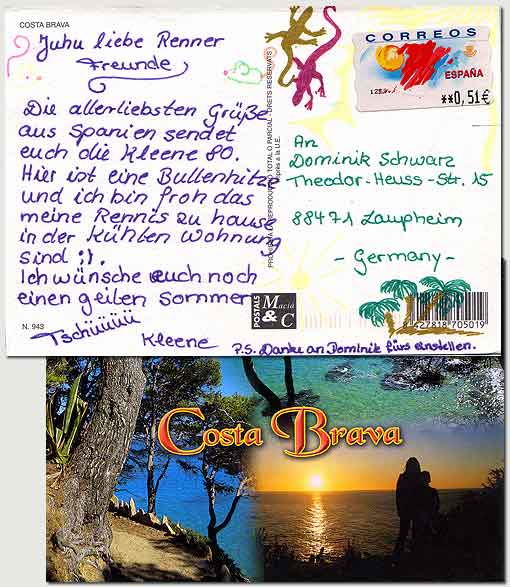 COSTA BRAVA
Juhu liebe Renner
Freunde
Die allerliebsten Grüße
aus Spanien sendet
euch die Kleene 80.
Hier ist eine Bullenhitze
und ich bin froh das
meine Rennis zu hause
in der kühlen Wohnung
sind :).
Ich wünsche euch noch
einen geilen Sommer
Tschüüüüü
Kleene
N. 943
P.S. Danke an Dominik fürs einstellen.
PROHIBIDA LA REPRODUCCIÓ TOTAL O PARCIAL - DRETS RESERVATS
POSTALS
Macià
& C
CORREOS
ESPAÑA
**0,51€
An
Dominik Schwarz
Theodor-Heuss-Str. 15
88471 Laupheim
- Germany -
8 427818 705019
Costa Brava